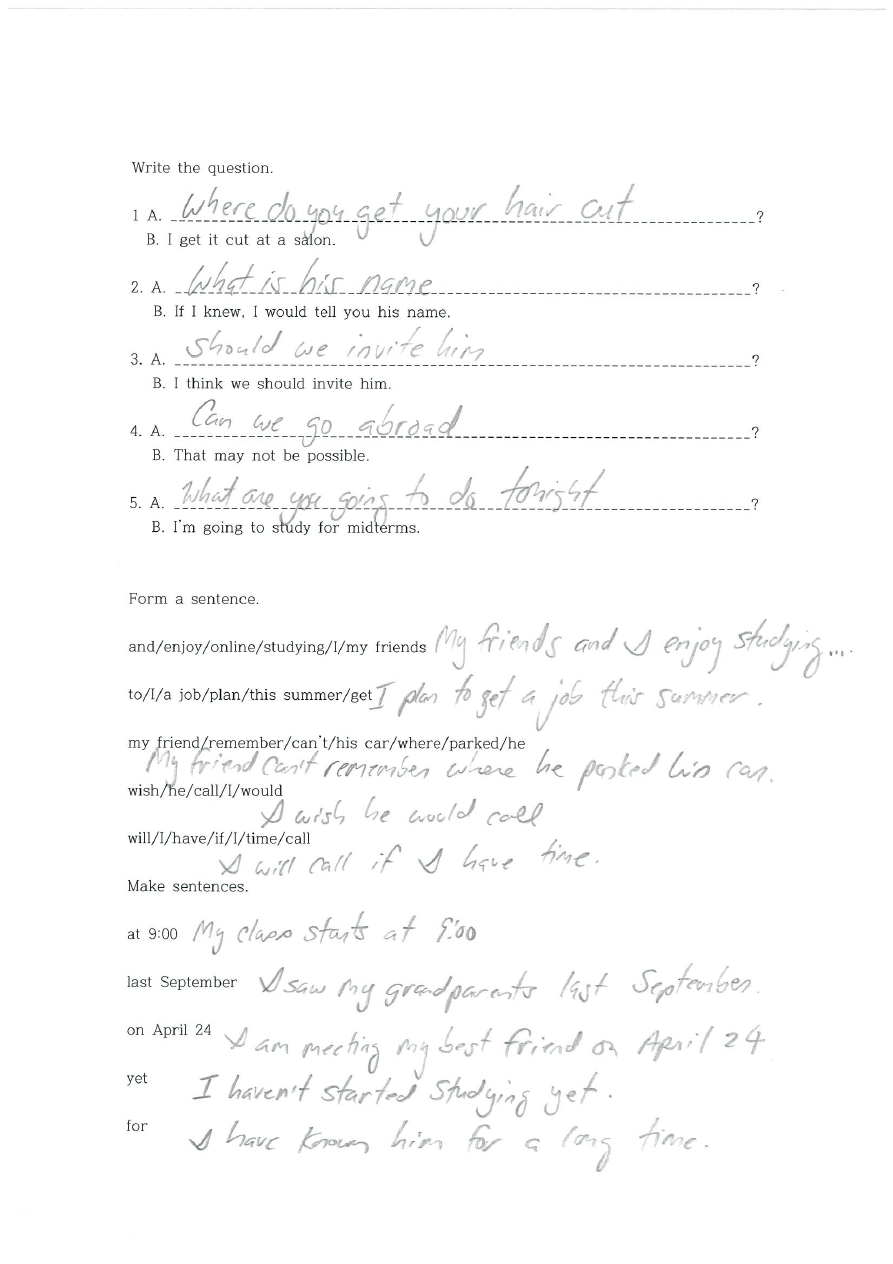 Write the question.
1 A. Where do you get your hair cut?
B. I get it cut at a salon.
2. A. What is his name?
B. If I knew, I would tell you his name.
3. A. should we invite him?
B. I think we should invite him.
4. A. Can we go abroad?
B. That may not be possible.
5. A. What are you going to do tonight?
B. I'm going to study for midterms.
Form a sentence.
and/enjoy/online/studying/I/my friends My friends and I enjoy studying....
to/I/a job/plan/this summer/get I plan to get a job this summer.
my friend/remember/can't/his car/where/parked/he
My friend can't remember where he parked his car.
wish/he/call/I/would
I wish he would call
will/I/have/if/I/time/call
I will call if I have time.
Make sentences.
at 9:00 My class starts at 9:00
last September I saw my grandparents last September.
on April 24 I am meeting my best friend on April 24
yet I haven't started studying yet.
for I have known him for a long time.